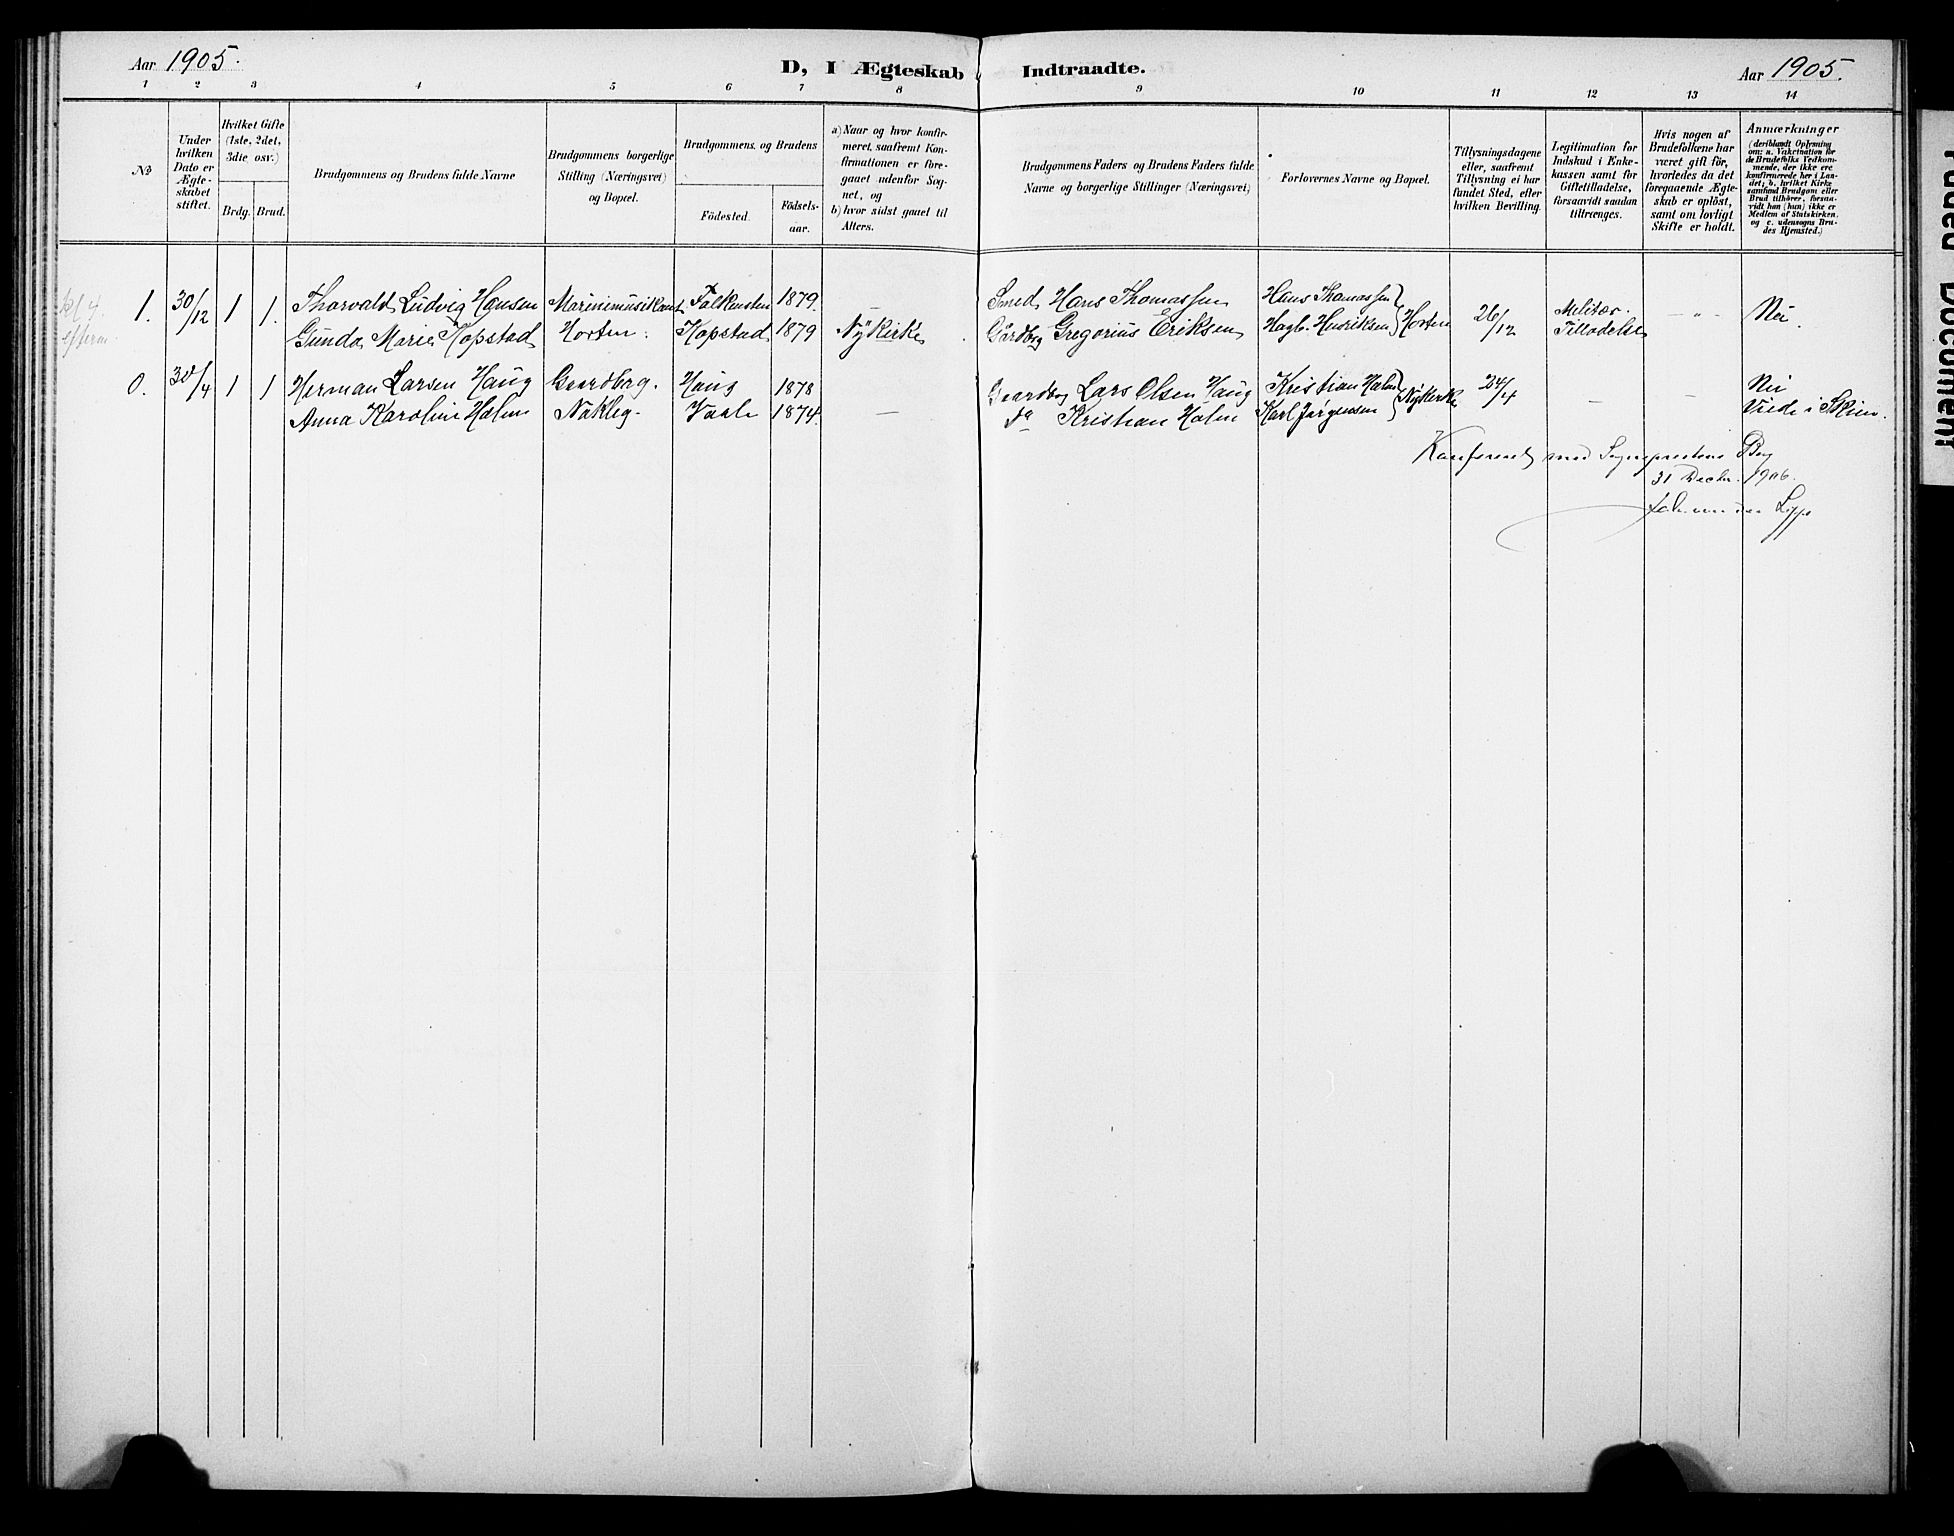 Aar 1905.
D, I Ægteskab Indtraadte.
Aar 1905.
1 2 3 4 5 6 7 8 9 10 11 12 13 14
No
Under hvilken Dato er Ægteskabet stiftet.
Hvilket Gifte (1ste, 2det, 3die osv.)
Brdg. Brud.
Brudgommens og Brudens fulde Navne
Brudgommens borgerlige Stilling (Næringsvei) og Bopæl.
Brudgommens og Brudens
Födested. Födsels-aar.
a) Naar og hvor konfirmeret, saafremt Konfirmationen er foregaaet udenfor Sognet, og
b) hvor sidst gaaet til Alters.
Brudgommens Faders og Brudens Faders fulde Navne og borgerlige Stillinger (Næringsvei)
Forlovernes Navne og Bopæl.
Tillysningsdagene eller, saafremt Tillysning ei har fundet Sted, efter hvilken Bevilling.
Legitimation for Indskud i Enkekassen samt for Giftetilladelse, forsaavidt saadan tiltrænges.
Hvis nogen af Brudefolkene har været gift før, hvorledes da det foregaaende Ægteskab er opløst, samt om lovligt Skifte er holdt.
Anmærkninger (deriblandt Oplysning om: a. Vakcination for de Brudefolks Vedkommende, der ikke ere konfirmerede her i Landet; b. hvilket Kirkesamfund Brudgom eller Brud tilhører, forsaavidt han (hun) ikke er Medlem af Statskirken, og c. udensogns Brudes Hjemsted.)
kl 4 1. 30/12 1 1. Thorvald Ludvig Hansen Marinemusikant Falkensten 1879. — Smed Hans Thomassen Hans Thomassen 26/12 Militær. — " — Nei
efterm. Gunda Marie Kopstad Horten. Kopstad 1879 Nykirke Gårdbrg Gregorius Eriksen Hagb. Henriksen } Horten Tilladelse
0. 30/4 1 1 Herman Larsen Haug Gaardbrg. Haug 1878 Gaardbrg Lars Olsen Haug Kristian Holm 24/4 — — Nei
Anna Karoline Holm Nykirke 1874. — do Kristian Holm Karl Jørgensen } Viede i Skien.
Konfereret med Sogneprestens Bog
31 Decbr. 1906.